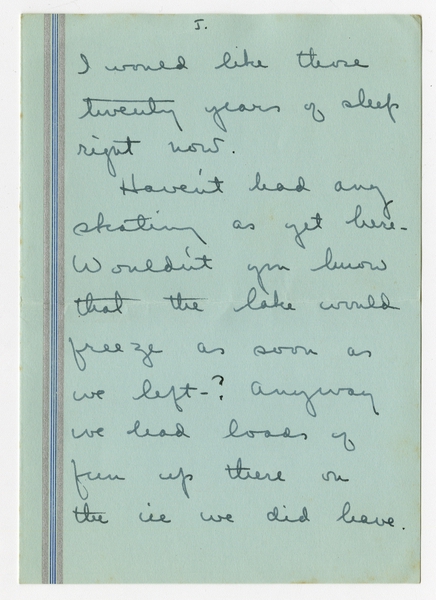 5.
I would like those
twenty years of sleep
right now.
Haven't had any
skating as yet here-
Wouldn't you know
that the lake would
freeze as soon as
we left-? Anyway
we had loads of
fun up there on
the ice we did have.